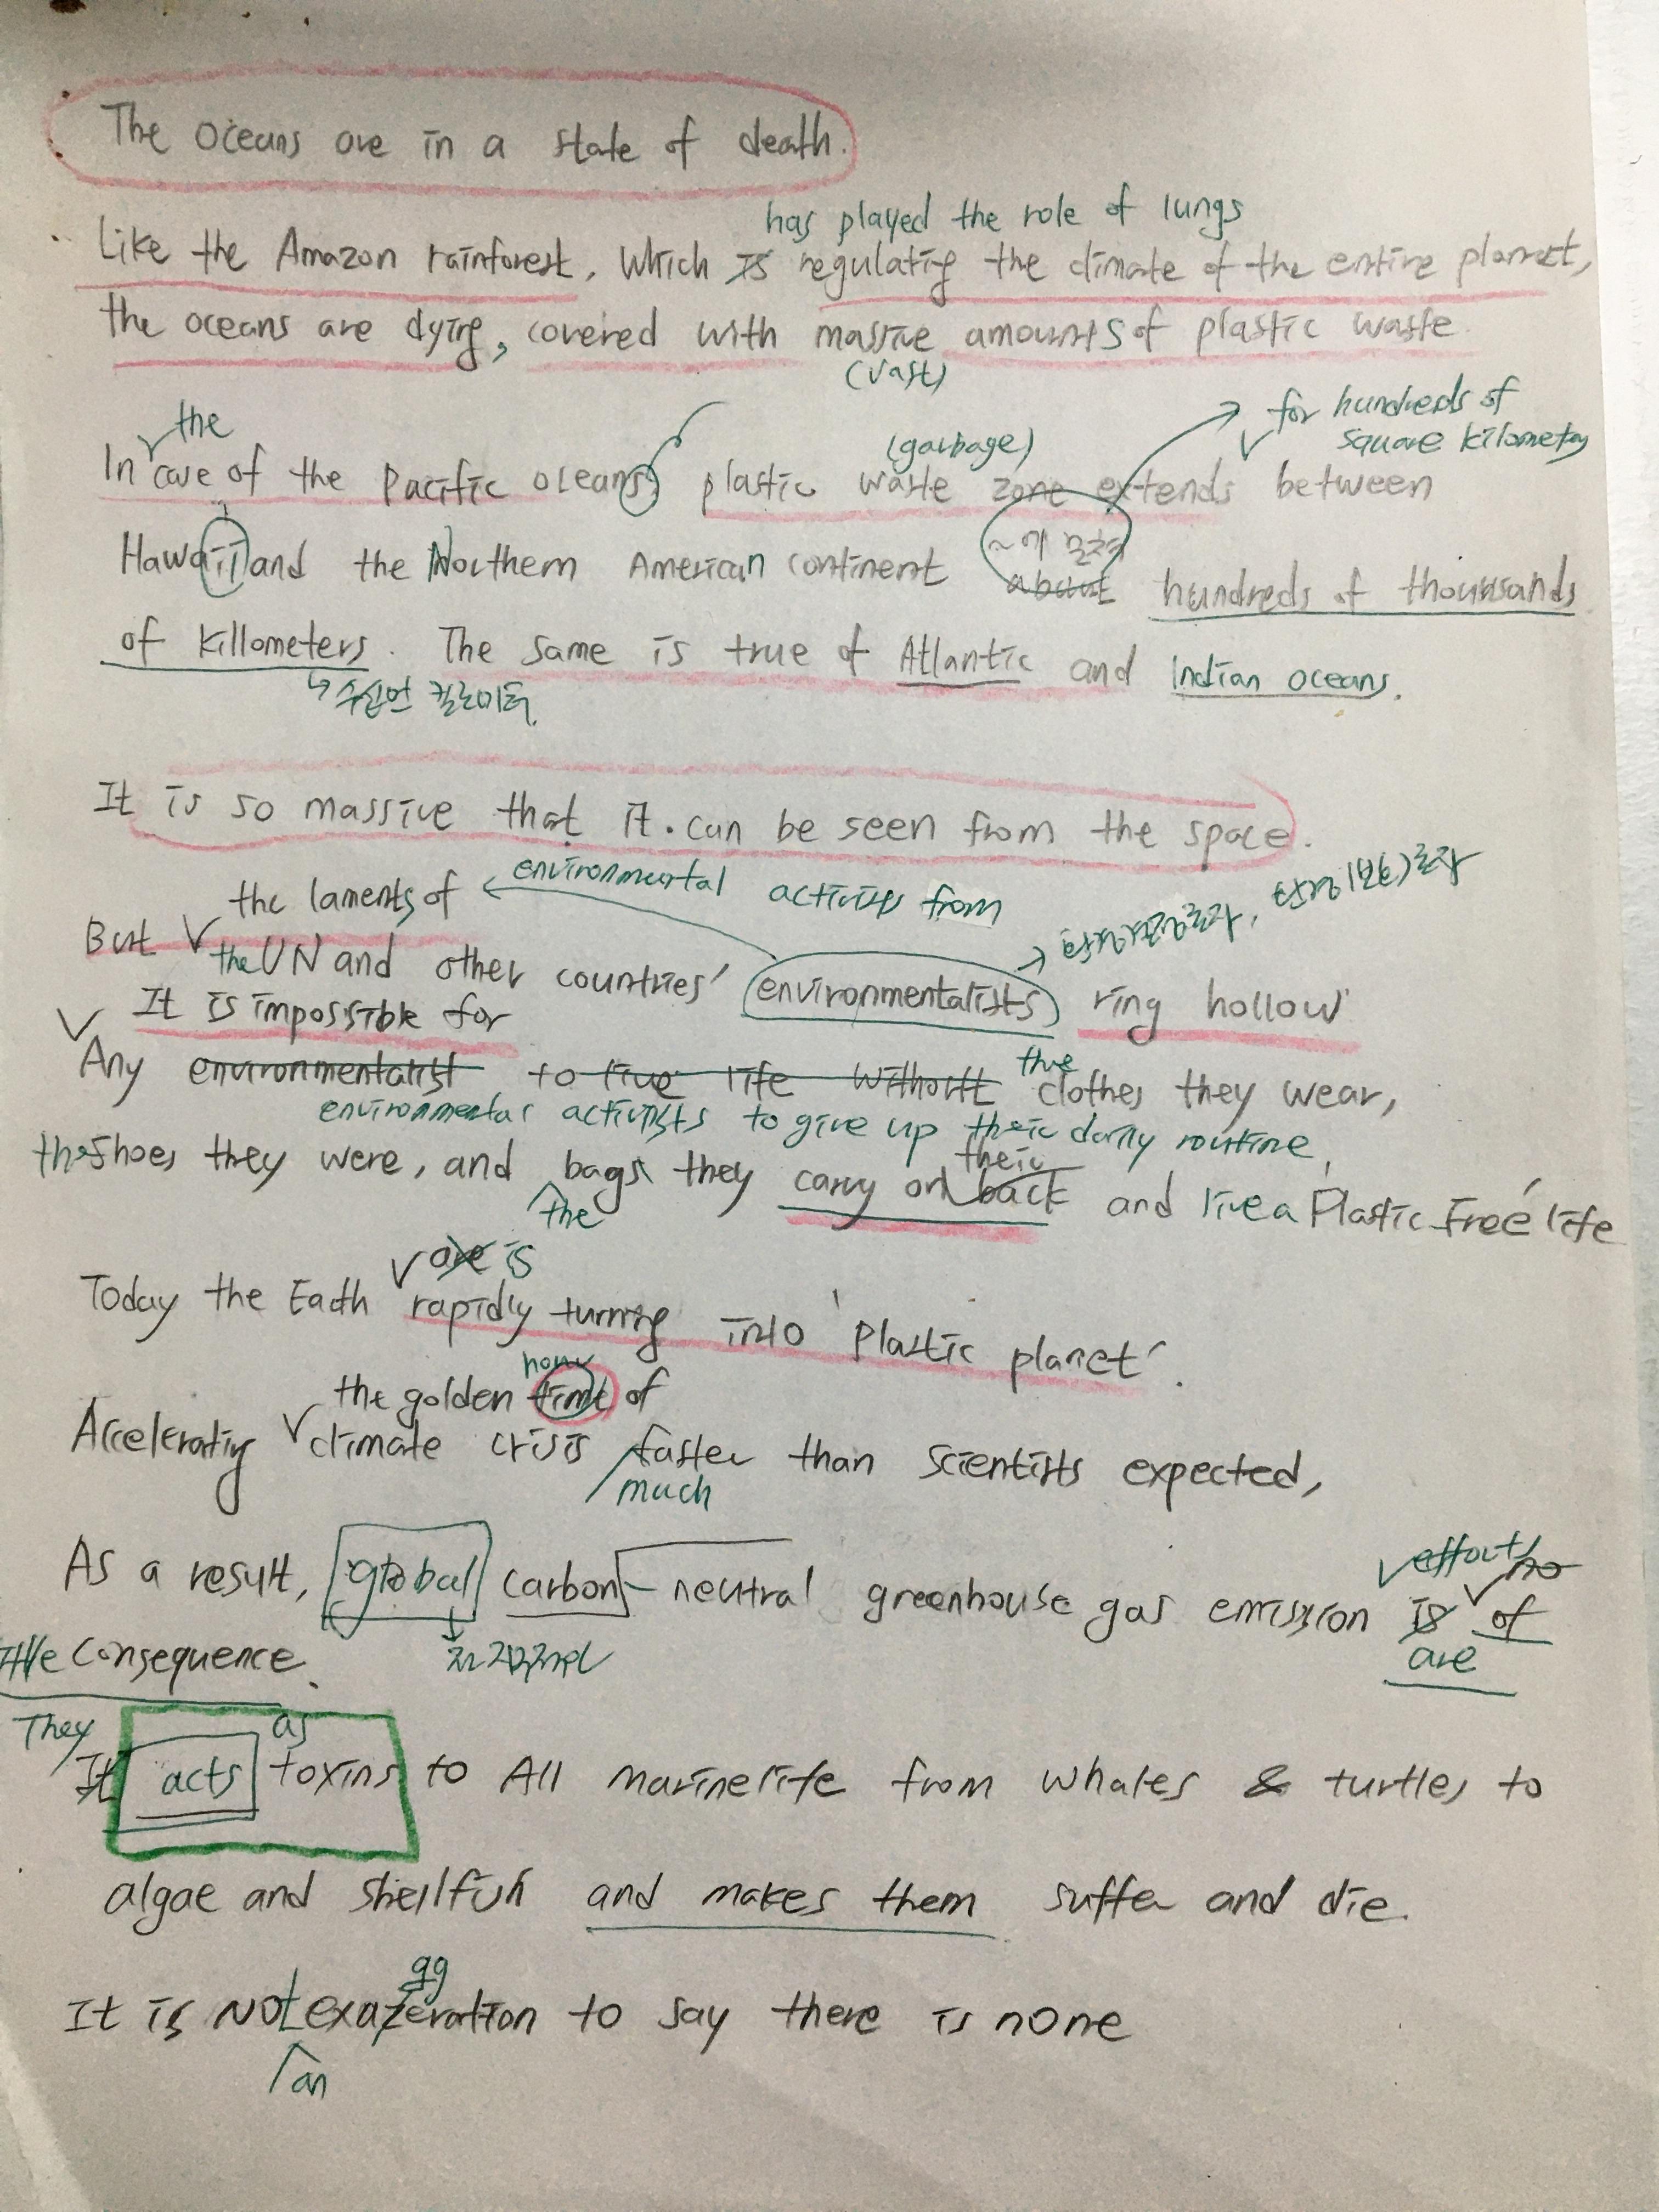 The oceans are in a state of death.
has played the role of lungs
Like the Amazon rainforest, which is regulating the climate of the entire planet,
the oceans are dying, covered with massive amounts of plastic waste.
(vast)
the
for hundreds of
square kilometers
(garbage)
In case of the Pacific oceans, plastic waste zone extends between
~에 걸쳐
Hawaii and the Northern American continent about hundreds of thousands
of killometers. The same is true of Atlantic and Indian oceans.
↳ 수십먼 킬로미터.
It is so massive that it can be seen from the space.
the laments of ← environmental activists from
But the UN and other countries' environmentalists ring hollow
It is impossible for
Any environmentalist to live life without the clothes they wear,
environmental activists to give up their daily routine,
the shoes they were, and bags they carry on back and live a 'Plastic Free' life
their
the
are is
Today the Earth rapidly turning into 'plastic planet'.
the golden time of
Accelerating climate crisis faster than scientists expected,
much
efforts no
As a result, global carbon-neutral greenhouse gas emission is of
are
little consequence.
They
as
It acts toxins to All marine life from whales & turtles to
algae and shellfish and makes them suffer and die.
gg
It is Not exazeration to say there is none
an